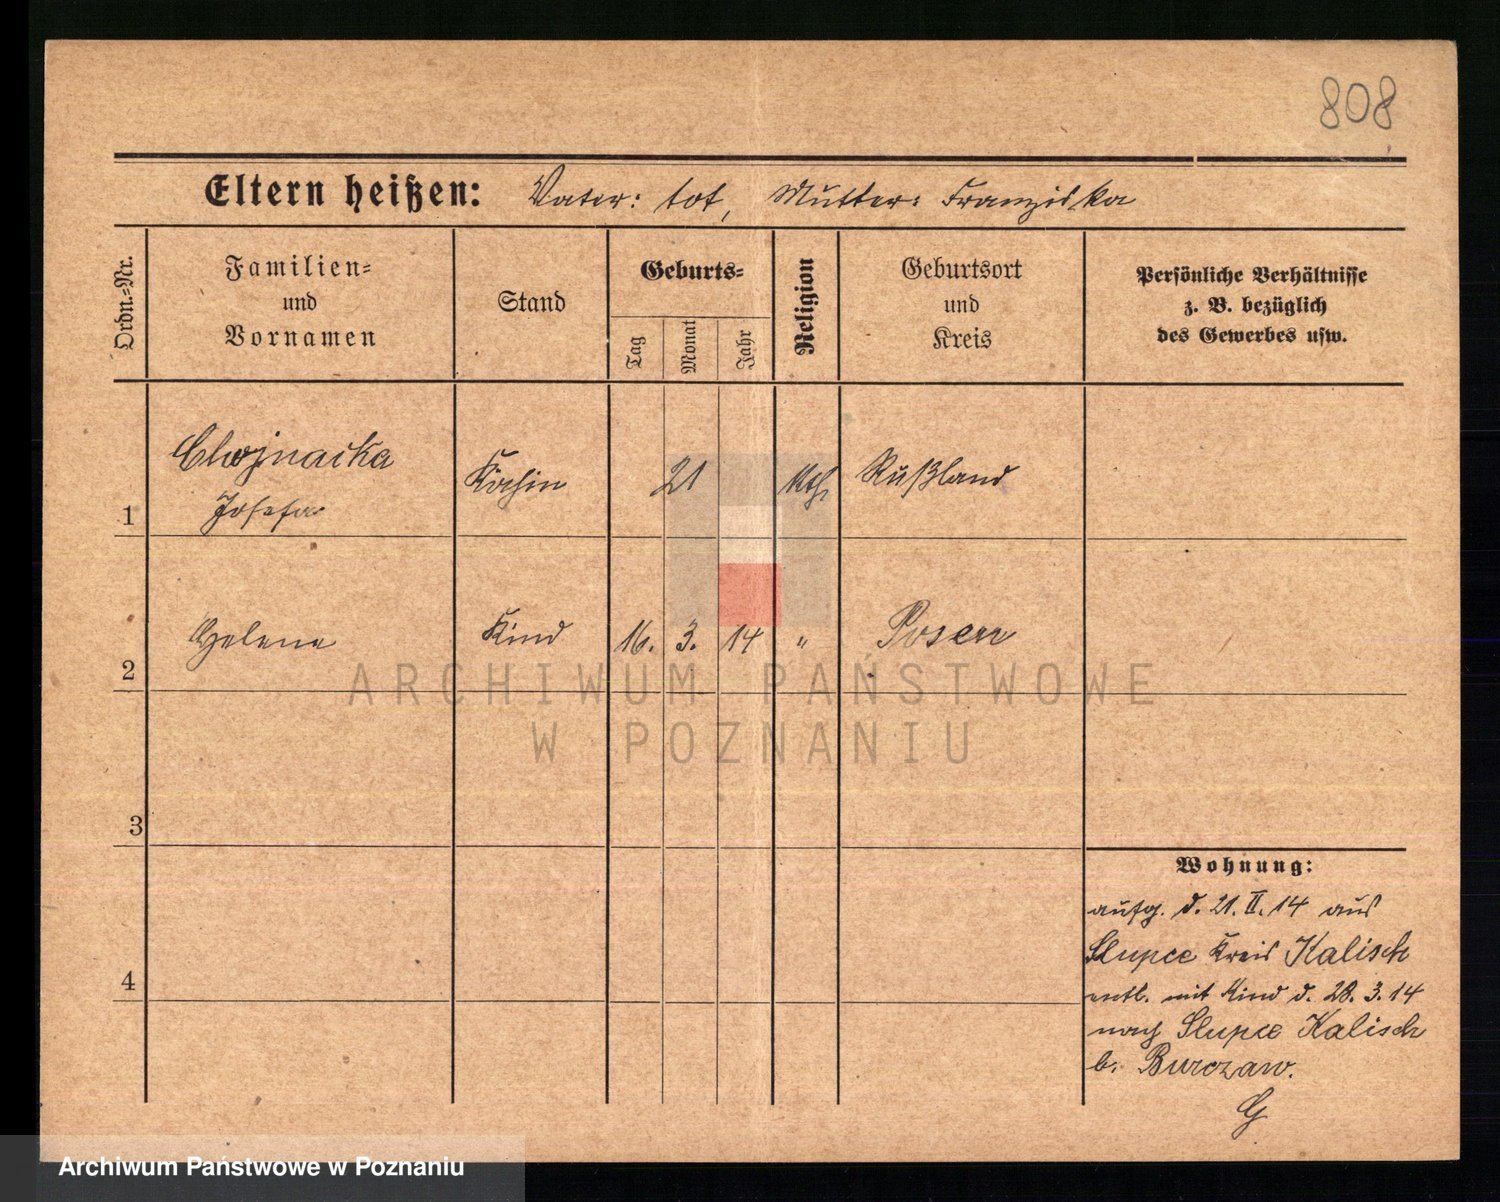 808
Eltern heißen: Vater: tot, Mutter: Franziska
Ordn.-Nr.
Familien- und Vornamen
Stand
Geburts-
Tag
Monat
Jahr
Religion
Geburtsort und Kreis
Persönliche Verhältnisse
z. B. bezüglich
des Gewerbes usw.
Chojnacka
1 Josefa Köchin 21 kth. Rußland
2 Helene Kind 16. 3. 14 " Posen
3
4
Wohnung:
aufg. d. 21. II. 14 aus
Slupce Kreis Kalisch
entl. mit Kind d. 28. 3. 14
nach Slupce Kalisch
b. Burczaw.
G
ARCHIWUM PAŃSTWOWE
W POZNANIU
Archiwum Państwowe w Poznaniu